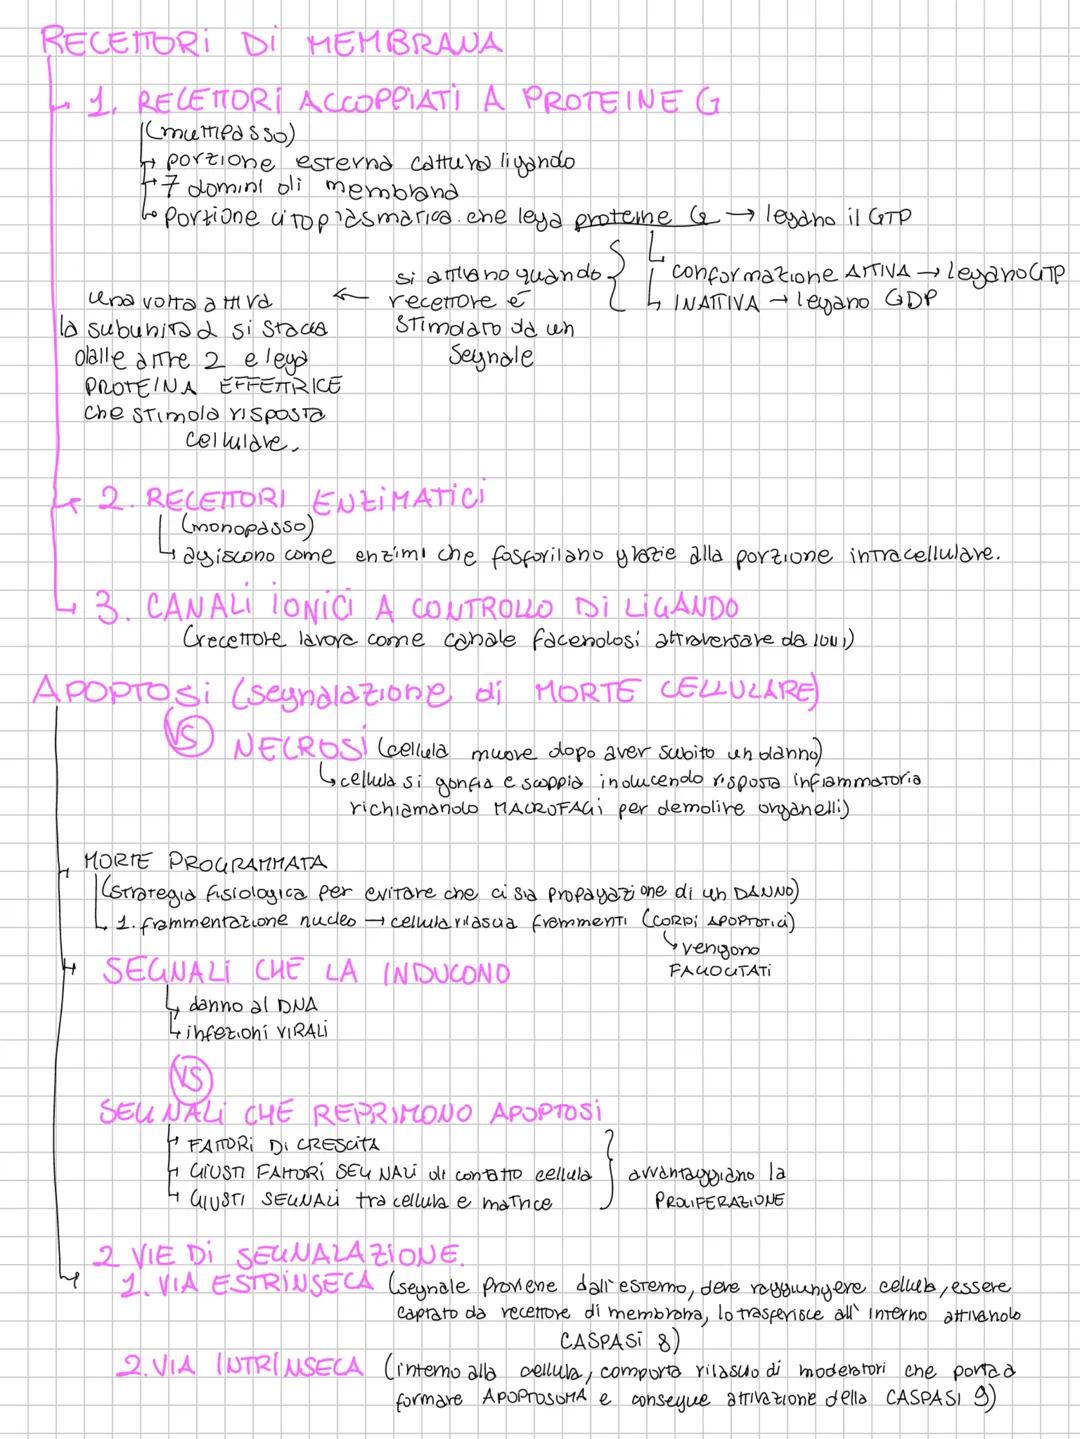 RECETTORI DI MEMBRANA
1. RECETTORI ACCOPPIATI A PROTEINE G
(multipasso)
porzione esterna cattura ligando
7 domini di membrana
porzione citoplasmatica che lega proteine G → legano il GTP
conformazione ATTIVA → legano GTP
INATTIVA → legano GDP
si attivano quando
recettore è
stimolato da un
segnale
una volta attiva
la subunità α si stacca
dalle altre 2 e lega
PROTEINA EFFETTRICE
che stimola risposta
cellulare.
2. RECETTORI ENZIMATICI
(monopasso)
agiscono come enzimi che fosforilano grazie alla porzione intracellulare.
3. CANALI IONICI A CONTROLLO DI LIGANDO
(recettore lavora come canale facendosi attraversare da ioni)
APOPTOSI (segnalazione di MORTE CELLULARE)
VS
NECROSI (cellula muore dopo aver subito un danno)
cellula si gonfia e scoppia inducendo risposta infiammatoria
richiamando MACROFAGI per demolire organelli)
MORTE PROGRAMMATA
(strategia fisiologica per evitare che ci sia propagazione di un DANNO)
1. frammentazione nucleo → cellula rilascia frammenti (CORPI APOPTOTICI)
vengono
FAGOCITATI
SEGNALI CHE LA INDUCONO
danno al DNA
infezioni VIRALI
VS
SEGNALI CHE REPRIMONO APOPTOSI
FATTORI DI CRESCITA
GIUSTI FATTORI SEGNALI di contatto cellula
GIUSTI SEGNALI tra cellula e matrice
avvantaggiano la
PROLIFERAZIONE
2 VIE DI SEGNALAZIONE.
1. VIA ESTRINSECA (segnale proviene dall'esterno, deve raggiungere cellula, essere
captato da recettore di membrana, lo trasferisce all'interno attivando
CASPASI 8)
2. VIA INTRINSECA (interno alla cellula, comporta rilascio di moderatori che porta a
formare APOPTOSOMA e consegue attivazione della CASPASI 9)